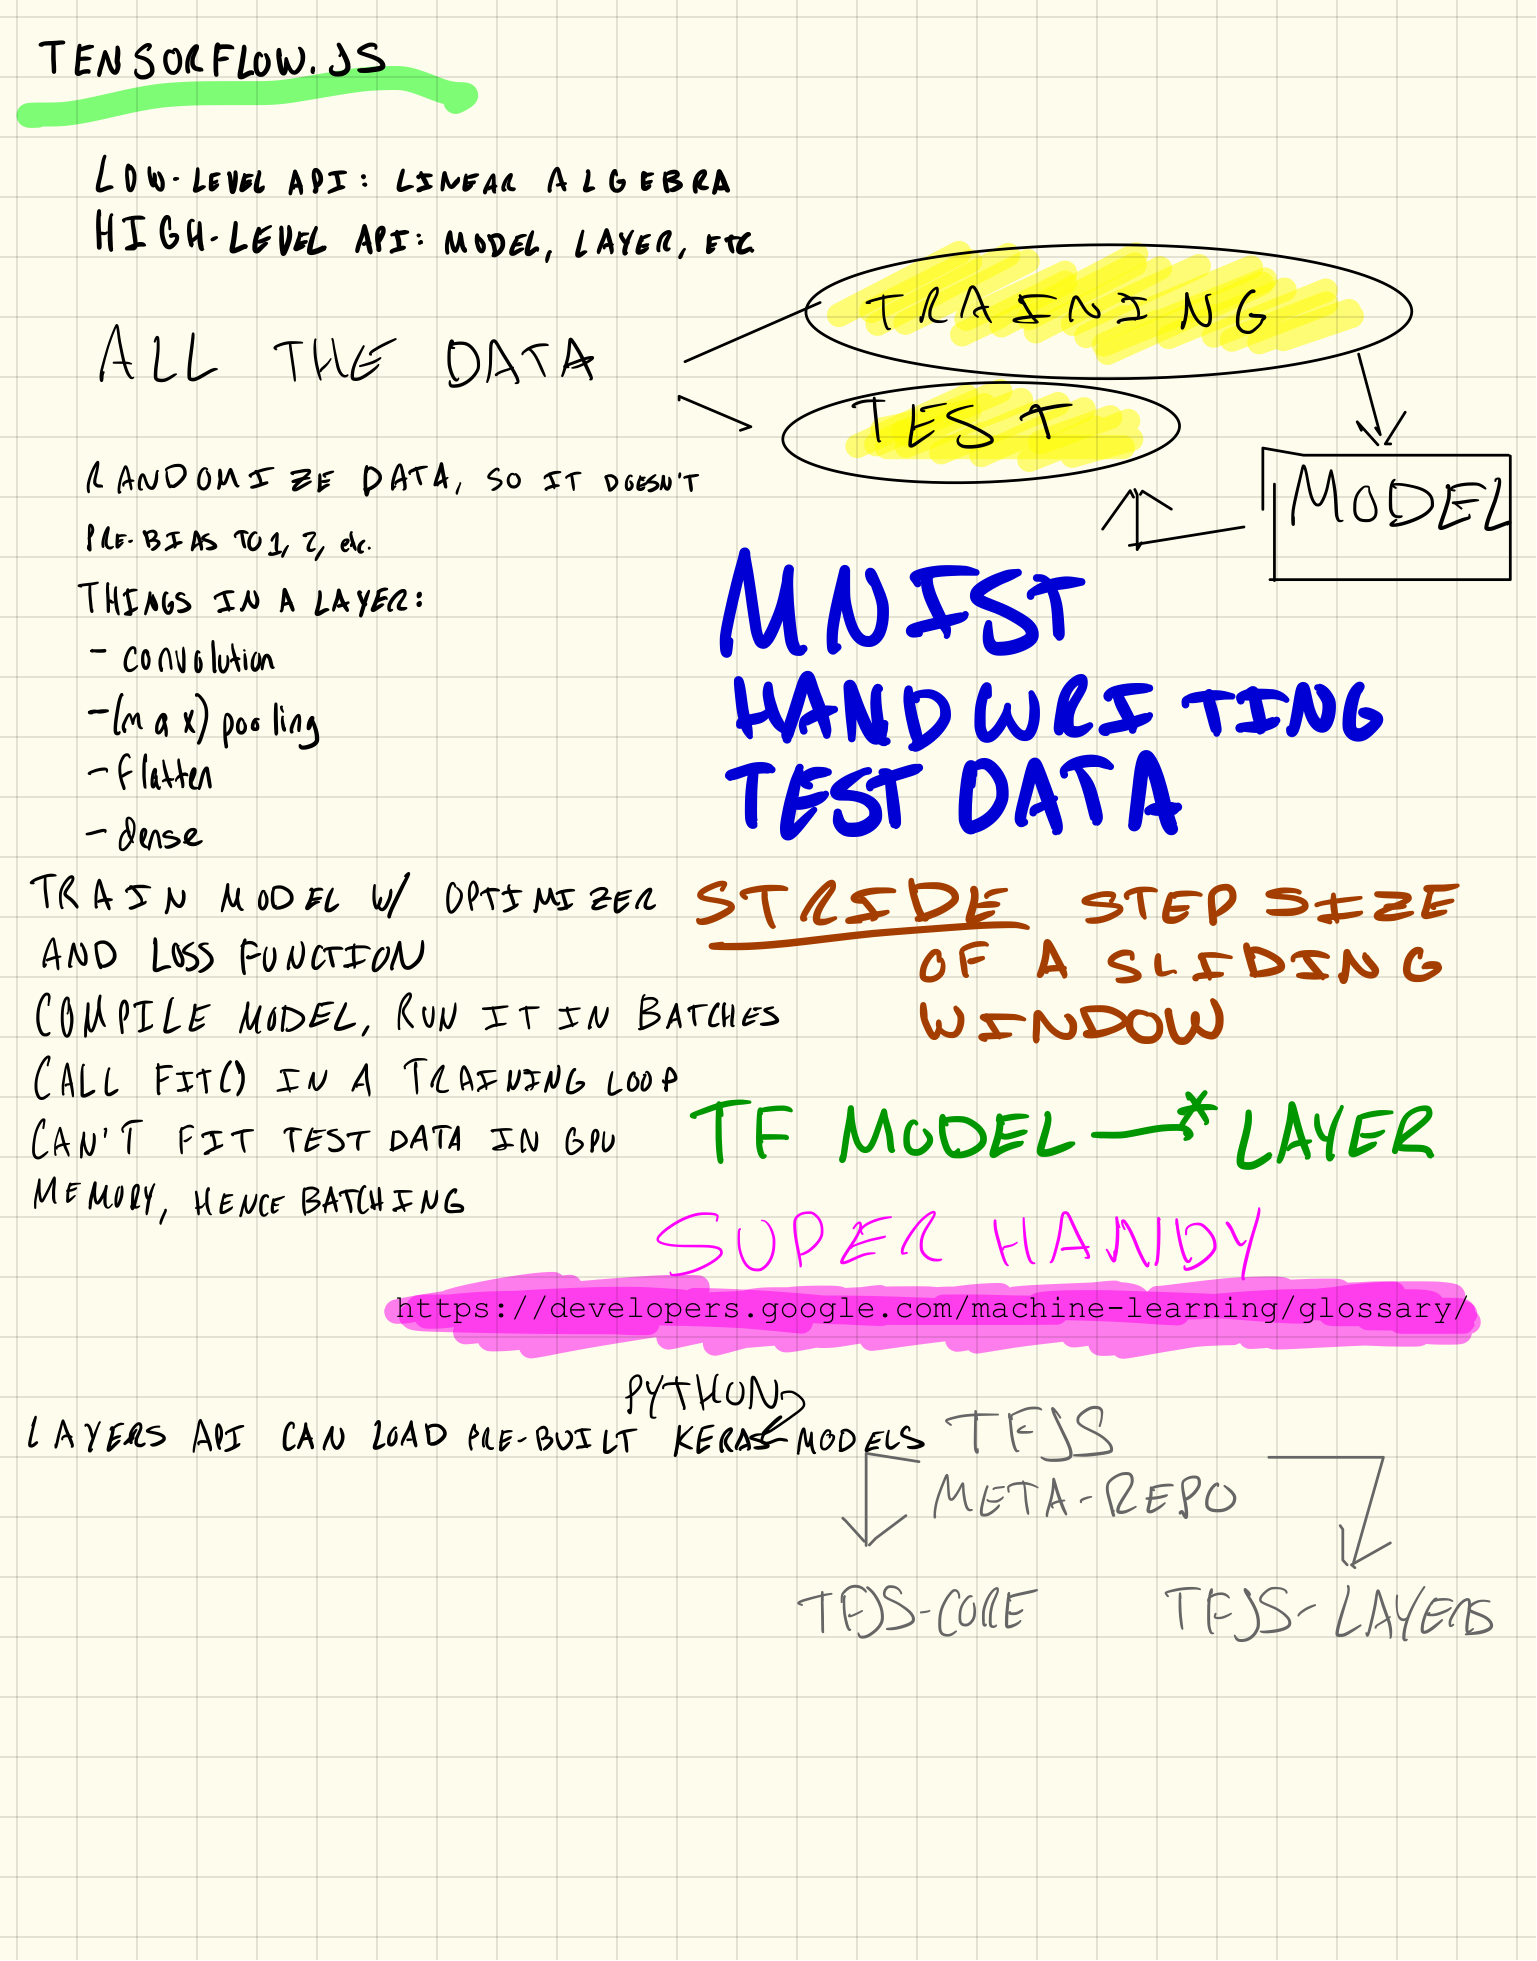 TENSORFLOW.JS
LOW-LEVEL API: LINEAR ALGEBRA
HIGH-LEVEL API: MODEL, LAYER, ETC
ALL THE DATA
TRAINING
TEST
MODEL
RANDOMIZE DATA, SO IT DOESN'T
PRE-BIAS TO 1, 2, etc.
THINGS IN A LAYER:
- convolution
- (max) pooling
- flatten
- dense
MNIST
HANDWRITING
TEST DATA
TRAIN MODEL W/ OPTIMIZER
AND LOSS FUNCTION
COMPILE MODEL, RUN IT IN BATCHES
CALL FIT() IN A TRAINING LOOP
CAN'T FIT TEST DATA IN GPU
MEMORY, HENCE BATCHING
STRIDE STEP SIZE
OF A SLIDING
WINDOW
TF MODEL —* LAYER
SUPER HANDY
https://developers.google.com/machine-learning/glossary/
PYTHON
LAYERS API CAN LOAD PRE-BUILT KERAS MODELS
TFJS
META-REPO
TFJS-CORE
TFJS-LAYERS